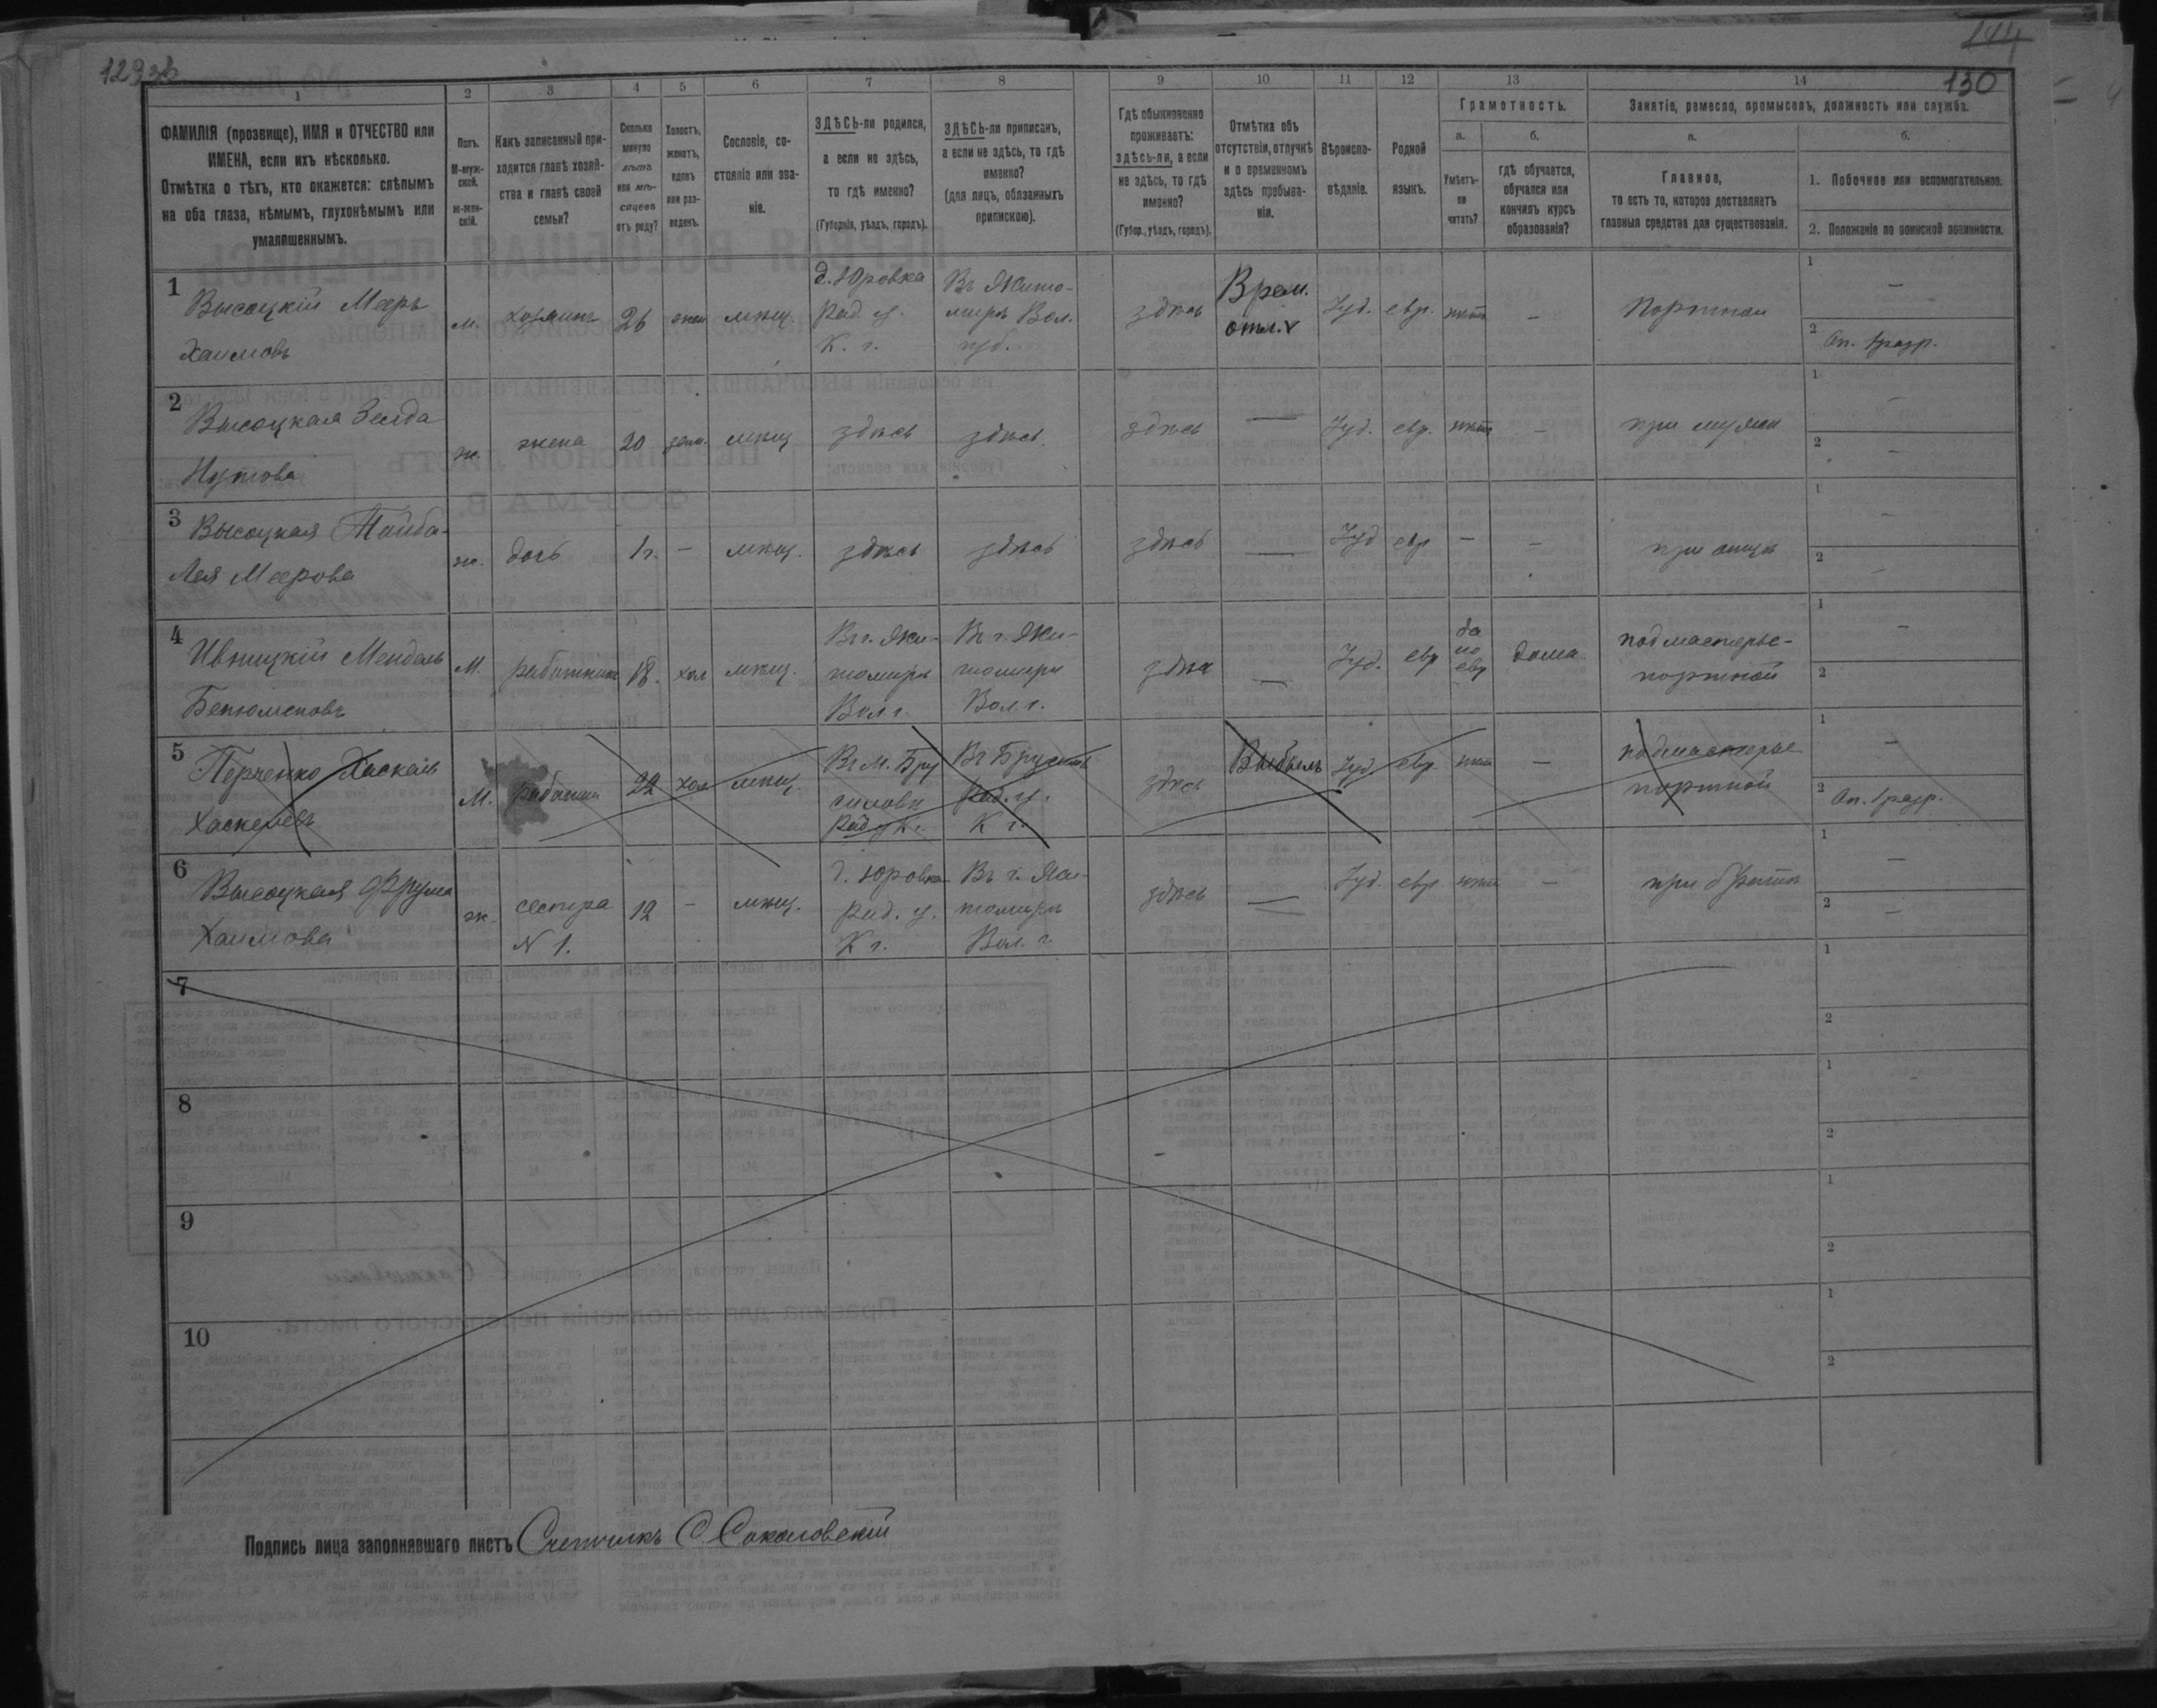 12936
144
130
1
2
3
4
5
6
7
8
9
10
11
12
13
14
ФАМИЛІЯ (прозвище), ИМЯ и ОТЧЕСТВО или
ИМЕНА, если ихъ нѣсколько.
Отмѣтка о тѣхъ, кто окажется: слѣпымъ
на оба глаза, нѣмымъ, глухонѣмымъ или
умалишеннымъ.
Полъ.
М-муж-
ской.
ж-жен-
скій.
Какъ записанный при-
ходится главѣ хозяй-
ства и главѣ своей
семьи?
Сколько
минуло
лѣтъ
или мѣ-
сяцевъ
отъ роду?
Холостъ,
женатъ,
вдовъ
или раз-
веденъ.
Сословіе, со-
стояніе или зва-
ніе.
ЗДѢСЬ-ли родился,
а если не здѣсь,
то гдѣ именно?
(Губернія, уѣздъ, городъ).
ЗДѢСЬ-ли приписанъ,
а если не здѣсь, то гдѣ
именно?
(для лицъ, обязанныхъ
припискою).
Гдѣ обыкновенно
проживаетъ:
здѣсь-ли, а если
не здѣсь, то гдѣ
именно?
(Губер., уѣздъ, городъ).
Отмѣтка объ
отсутствіи, отлучкѣ
и о временномъ
здѣсь пребыва-
ніи.
Вѣроиспо-
вѣданіе.
Родной
языкъ.
Грамотность.
а.
Умѣетъ-
ли
читать?
б.
гдѣ обучается,
обучался или
кончилъ курсъ
образованія?
Занятіе, ремесло, промыселъ, должность или служба.
а.
Главное,
то есть то, которое доставляетъ
главныя средства для существованія.
б.
1. Побочное или вспомогательное.
2. Положеніе по воинской повинности.
1
Высоцкій Мееръ
Хаимовъ
м.
хозяинъ
26
жен
мѣщ
д. Юровка
Рад. у.
К. г.
Въ Жито-
мирѣ Вол.
губ.
здѣсь
Врем.
отл.
Іуд.
евр.
нѣтъ
—
Портной
1 —
2 Оп. 1разр.
2
Высоцкая Зелда
Нутова
ж.
жена
20
зам.
мѣщ
здѣсь
здѣсь
здѣсь
—
Іуд.
евр.
нѣтъ
—
при мужѣ
1 —
2 —
3
Высоцкая Тайба-
Лея Меерова
ж.
дочь
1г.
—
мѣщ.
здѣсь
здѣсь
здѣсь
—
Іуд
евр
—
—
при отцѣ
1 —
2 —
4
Ивницкій Мендель
Бенюменовъ
М.
работникъ
18.
хол
мѣщ.
Въ г. Жи-
томирѣ
Вол г.
Въ г. Жи-
томирѣ
Вол. г.
здѣс
—
Іуд.
евр
да
по
евр
дома
подмастерье-
портной
1 —
2
5
Перченко Хаскель
М.
22
хол
мѣщ
Въ м. Бру
силовѣ
Рад у К г.
Рад. у.
К г.
здѣсь
Выбылъ
Іуд.
евр.
нѣтъ
—
подмастерье
портной
1 —
2 Оп. 1разр.
6
Высоцкая Фрума
Хаимова
ж.
сестра
N 1.
12
—
мѣщ.
д. Юровка
Рад. у.
К г.
Въ г. Жи-
томирѣ
Вол. г.
здѣсь
—
Іуд.
евр.
нѣтъ
—
при братѣ
1 —
2 —
7
1
2
8
1
2
9
1
2
10
1
2
Подпись лица заполнявшаго листъ Счетчикъ С. Соколовскій